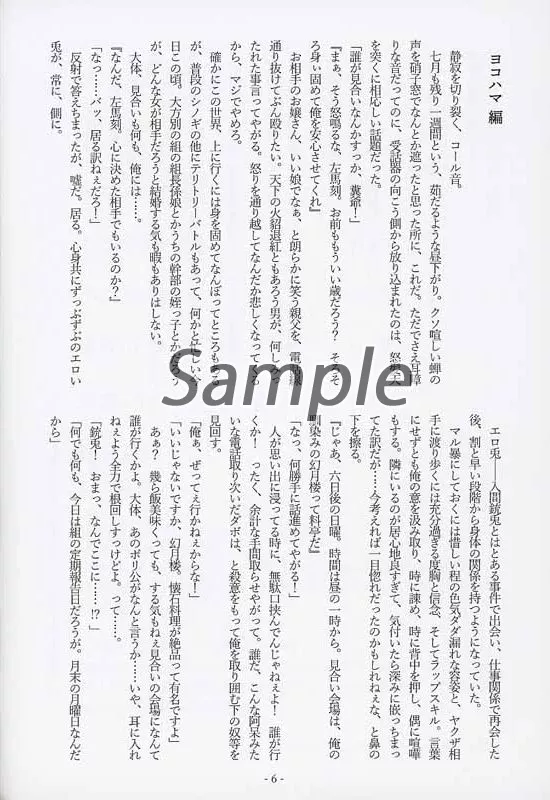 ヨコハマ 編
静寂を切り裂く、コール音。
七月も残り一週間という、茹だるような昼下がり。クソ喧しい蝉の
声を硝子窓でなんとか遮ったと思った所に、これだ。ただでさえ耳障
りな音だってのに、受話器の向こう側から放り込まれたのは、怒髪天
を突くに相応しい話題だった。
「誰が見合いなんかすっか、糞爺！」
『まぁ、そう怒鳴るな、左馬刻。お前ももういい歳だろう？　そろそ
ろ身ぃ固めて俺を安心させてくれ』
お相手のお嬢さん、いい娘でなぁ、と朗らかに笑う親父を、電話線
通り抜けてぶん殴りたい。天下の火貂退紅ともあろう男が、何しみっ
たれた事言ってやがる。怒りを通り越してなんだか悲しくなってくる
から、マジでやめろ。
確かにこの世界、上に行くには身を固めてなんぼってところもある
が、普段のシノギの他にテリトリーバトルもあって、何かと忙しい今
日この頃。大方別の組の組長孫娘とかうちの幹部の姪っ子とかだろう
が、どんな女が相手だろうと結婚する気も暇もありはしない。
大体、見合いも何も、俺には……。
『なんだ、左馬刻。心に決めた相手でもいるのか？』
「なっ……バッ、居る訳ねぇだろ！」
反射で答えちまったが、嘘だ。居る。心身共にずっぷずぶのエロい
兎が、常に、側に。
エロ兎――入間銃兎とはとある事件で出会い、仕事関係で再会した
後、割と早い段階から身体の関係を持つようになっていた。
マル暴にしておくには惜しい程の色気ダダ漏れな容姿と、ヤクザ相
手に渡り歩くには充分過ぎる度胸と信念、そしてラップスキル。言葉
にせずとも俺の意を汲み取り、時に諌め、時に背中を押し、偶に喧嘩
もする。隣にいるのが居心地良すぎて、気付いたら深みに嵌っちまっ
てた訳だが……今考えれば一目惚れだったのかもしれねぇな、と鼻の
下を擦る。
『じゃあ、六日後の日曜。時間は昼の一時から。見合い会場は、俺の
馴染みの幻月楼って料亭だ』
「なっ、何勝手に話進めてやがる！」
人が思い出に浸ってる時に、無駄口挟んでんじゃねぇよ！　誰が行
くか！　ったく、余計な手間取らせやがって。誰だ、こんな阿呆みた
いな電話取り次いだダボは、と殺意をもって俺を取り囲む下の奴等を
見回す。
「俺ぁ、ぜってぇ行かねぇからな！」
「いいじゃないですか、幻月楼。懐石料理が絶品って有名ですよ」
あぁ？　幾ら飯美味くっても、する気もねぇ見合いの会場になんて
誰が行くかよ。大体、あのポリ公がなんと言うか……いや、耳に入れ
ねぇよう全力で根回しすっけどよ。って……。
「銃兎！　おまっ、なんでここに……!?」
「何でも何も、今日は組の定期報告日だろうが。月末の月曜日なんだ
から」
Sample
- 6 -